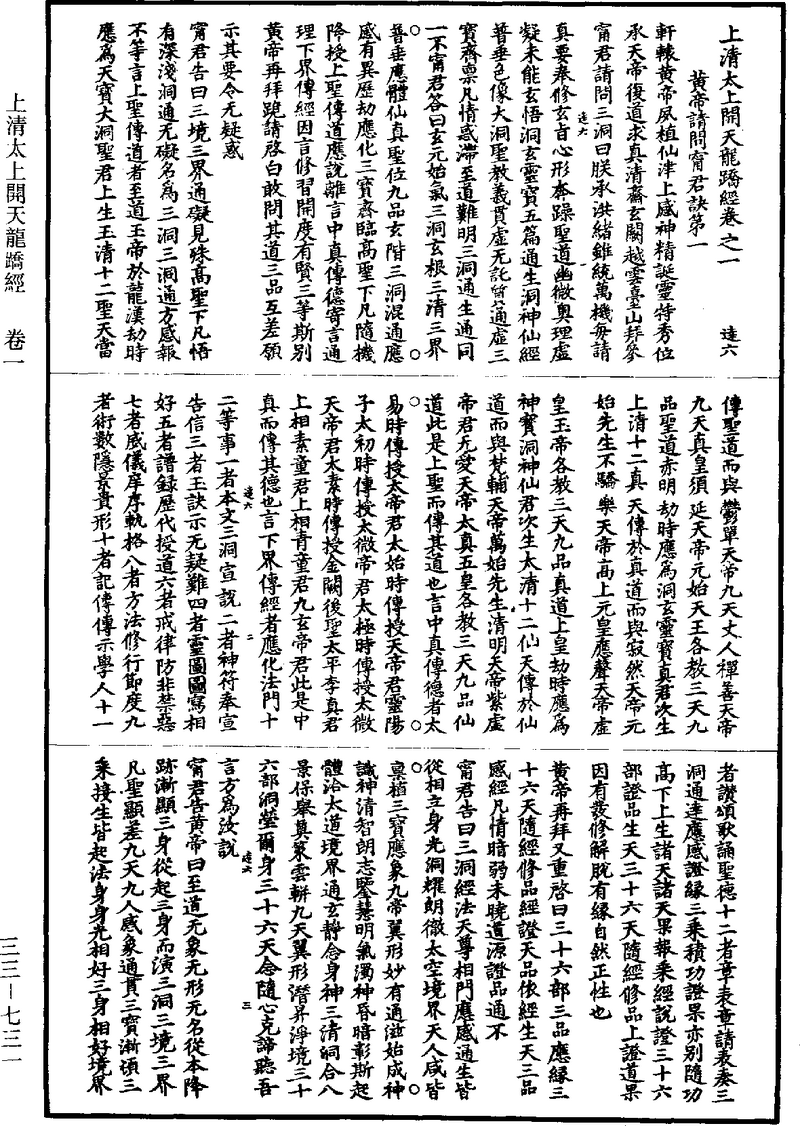 上清太上開天龍蹻經卷之一　　達六
黃帝請問甯君訣第一
軒轅黃帝夙植仙津上感神精誕靈特秀位
承天帝復道求真清齋玄闕越雲臺山拜參
甯君請問三洞曰朕承洪緒雖統萬機每請
真要奉修玄旨心形本躁聖道幽微奧理虛
凝未能玄悟洞玄靈寶五篇通生洞神仙經
普垂色像大洞聖教義貫虛无託質通虛三
寶齋稟凡情惑滯至道難明三洞通生通同
一不甯君答曰玄元始氣三洞玄根三清三界
普垂應體仙真聖位九品玄階三洞混通應
感有異歷劫應化三寶齊臨高聖下凡隨機
降授上聖傳道應說離言中真傳德寄言通
理下界傳經因言修習開度有賢三等斯別
黃帝再拜跪請啓白敢問其道三品互差願
示其要令无疑惑
甯君告曰三境三界通礙見殊高聖下凡悟
有深淺洞通无礙名為三洞三洞通方感報
不等言上聖傳道者至道玉帝於龍漢劫時
應為天寶大洞聖君上生玉清十二聖天當
傳聖道而與鬱單天帝九天丈人禪善天帝
九天真皇須延天帝元始天王各教三天九
品聖道赤明劫時應為洞玄靈寶真君次生
上清十二真天傳於真道而與寂然天帝元
始先生不驕樂天帝高上元皇應聲天帝虛
皇玉帝各教三天九品真道上皇劫時應為
神寶洞神仙君次生太清十二仙天傳於仙
道而與梵輔天帝萬始先生清明天帝紫虛
帝君无愛天帝太真五皇各教三天九品仙
道此是上聖而傳其道也言中真傳德者太
易時傳授太帝君太始時傳授天帝君靈陽
子太初時傳授太微帝君太極時傳授太微
天帝君太素時傳授金闕後聖太平李真君
上相素童君上相青童君九玄帝君此是中
真而傳其德也言下界傳經者應化法門十
二等事一者本文三洞宣說二者神符奉宣
告信三者玉訣示无疑難四者靈圖圖寫相
好五者譜錄歷代授道六者戒律防非禁惡
七者威儀庠序軌格八者方法修行節度九
者術數隱景貴形十者記傳傳示學人十一
者讚頌歌誦聖德十二者章表章請表奏三
洞通達應感證緣三乘積功證果亦別隨功
高下上生諸天諸天果報乘經說證三十六
部證品生天三十六天隨經修品上證道果
因有裝修解脫有緣自然正性也
黃帝再拜又重啓曰三十六部三品應緣三
十六天隨經修品經證天品依經生天三品
感經凡情暗弱未曉道源證品通不
甯君告曰三洞經法天尊相門應感通生皆
從相立身光洞耀朗徹太空境界天人咸皆
稟植三寶應象九帝翼形妙有通滋始成神
識神清智朗志堅慧明氣濁神昏暗彰斯起
體洽大道境界通玄靜念身神三清洞合八
景保舉莫策雲軿九天翼形潛昇淨境三十
六部洞瑩爾身三十六天念隨心克諦聽吾
言方為汝說
甯君告黃帝曰至道无象无形无名從本降
跡漸顯三身從起三身而演三洞三境三界
凡聖顯差九天九人感象通貫三寶漸頃三
乘接生皆起法身身光相好三身相好境界
上清太上開天龍蹻經　卷一
三三－七三一